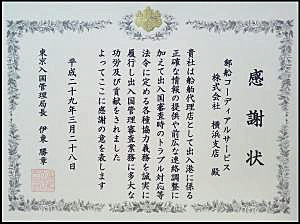 感謝状
郵船コーディアルサービス
株式会社 横浜支店 殿
貴社は船舶代理店として出入港に係る
正確な情報の提供や前広な連絡調整に
加えて出入国審査時のトラブル対応等
法令に定める各種協力義務を誠実に
履行し出入国管理審査業務に多大な
功労及び貢献をされました
よってここに感謝の意を表します
平成二十九年三月二十八日
東京入国管理局長 伊東 勝章